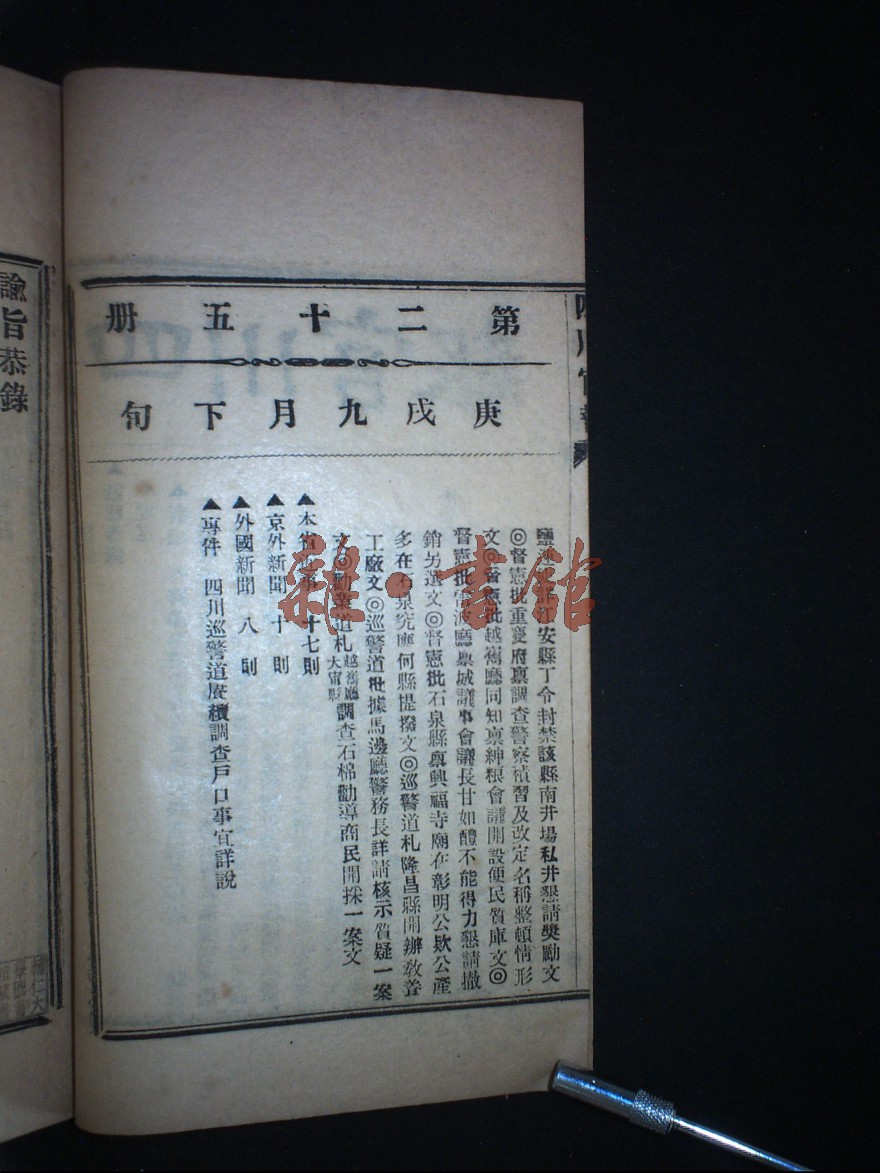 第二十五册
庚戌九月下旬
四川官報
江安縣丁令封禁該縣南井場私井懇請獎勵文
◎督憲批重夔府禀調查警察積習及改定名稱整頓情形
文◎督憲批越嶲廳同知禀紳粮會議開設便民質庫文◎
督憲批雷波廳禀城議事會議長甘如醴不能得力懇請撤
銷另選文◎督憲批石泉縣禀興福寺廟在彰明公欵公產
多在石泉究應何縣提撥文◎巡警道札隆昌縣開辦教養
工廠文◎巡警道批據馬邊廳警務長詳請核示質疑一案
文◎勸業道札越嶲廳大甯縣調查石棉勸導商民開採一案文
▲本省近事 十七則
▲京外新聞 十則
▲外國新聞 八則
▲專件 四川巡警道廳續調查戶口事宜詳說
諭旨恭錄
雜·書館